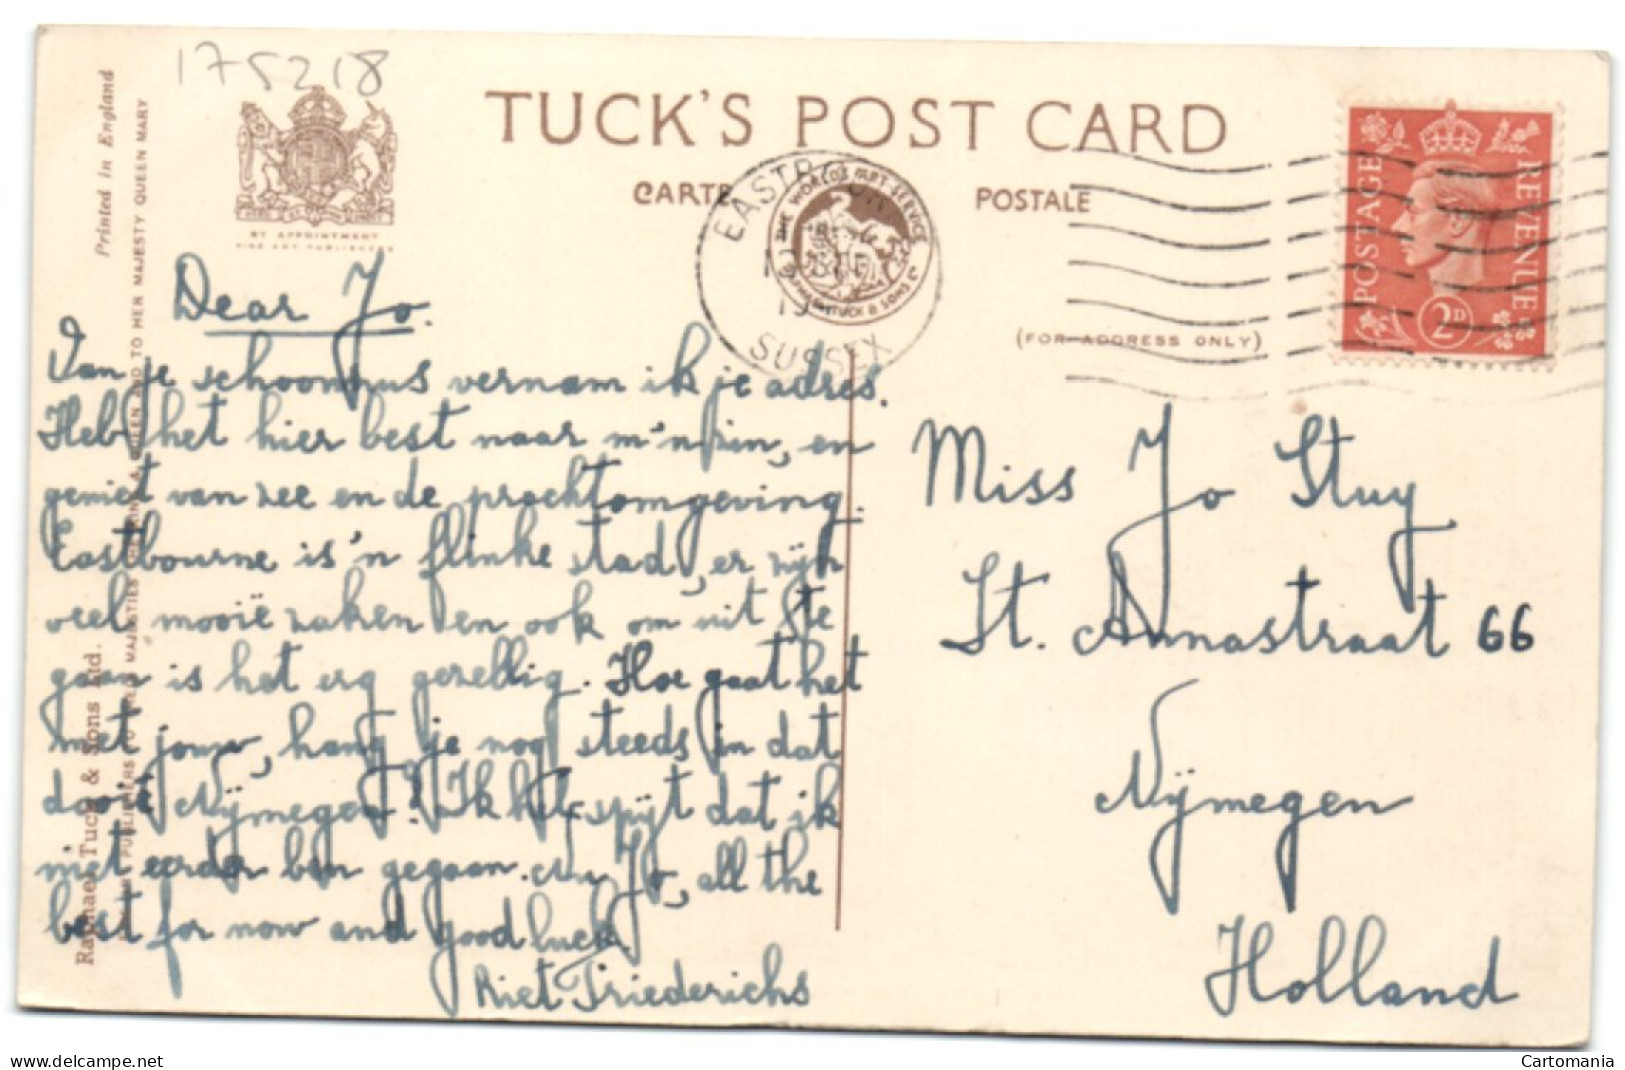 175218
TUCK'S POST CARD
CARTE POSTALE
BY APPOINTMENT
FINE ART PUBLISHERS
Printed in England
Raphael Tuck & Sons Ltd.
TO HER MAJESTY QUEEN MARY
THE WORLD'S ART SERVICE
TUCK & SONS LTD
EASTBOURNE
19
SUSSEX
(FOR ADDRESS ONLY)
POSTAGE REVENUE
2D
Dear Jo.
Van je schoonzus vernam ik je adres.
Heb het hier best naar m'n zin, en
geniet van zee en de prachtomgeving.
Eastbourne is 'n flinke stad, er zijn
veel mooie zaken en ook om uit te
gaan is het erg gezellig. Hoe gaat het
met jouw, hang je nog steeds in dat
dooie Nijmegen? Ik heb spijt dat ik
niet eerder ben gegaan. Nu Jo, all the
best for now and good luck.
Riet Friederichs
Miss Jo Stuy
St. Annastraat 66
Nijmegen
Holland
delcampe.net
Cartomania